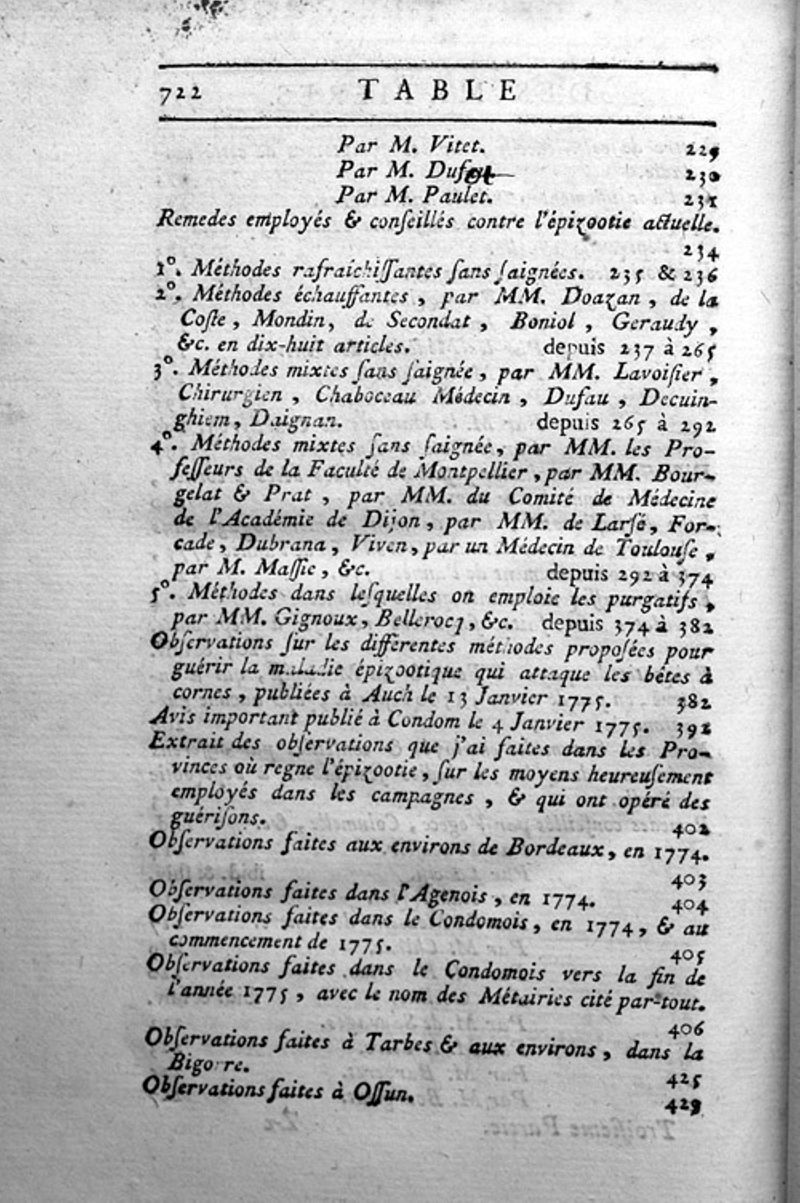 722 TABLE
Par M. Vitet. 229
Par M. Dufot 230
Par M. Paulet. 231
Remedes employés & conſeillés contre l'épizootie actuelle.
234
1°. Méthodes rafraîchiſſantes ſans ſaignées. 235 & 236
2°. Méthodes échauffantes, par MM. Doazan, de la
Coſte, Mondin, de Secondat, Boniol, Geraudy,
&c. en dix-huit articles. depuis 237 à 265
3°. Méthodes mixtes ſans ſaignée, par MM. Lavoiſier,
Chirurgien, Chaboceau Médecin, Dufau, Decuin-
ghiem, Daignan. depuis 265 à 292
4°. Méthodes mixtes ſans ſaignée, par MM. les Pro-
feſſeurs de la Faculté de Montpellier, par MM. Bour-
gelat & Prat, par MM. du Comité de Médecine
de l'Académie de Dijon, par MM. de Larſé, For-
cade, Dubrana, Viven, par un Médecin de Toulouſe,
par M. Maſſie, &c. depuis 292 à 374
5°. Méthodes dans leſquelles on emploie les purgatifs,
par MM. Gignoux, Bellerocq, &c. depuis 374 à 382
Obſervations ſur les différentes méthodes propoſées pour
guérir la maladie épizootique qui attaque les bêtes à
cornes, publiées à Auch le 13 Janvier 1775. 382
Avis important publié à Condom le 4 Janvier 1775. 392
Extrait des obſervations que j'ai faites dans les Pro-
vinces où regne l'épizootie, ſur les moyens heureuſement
employés dans les campagnes, & qui ont opéré des
guériſons. 402
Obſervations faites aux environs de Bordeaux, en 1774.
403
Obſervations faites dans l'Agenois, en 1774. 404
Obſervations faites dans le Condomois, en 1774, & au
commencement de 1775. 405
Obſervations faites dans le Condomois vers la fin de
l'année 1775, avec le nom des Métairies cité par-tout.
406
Obſervations faites à Tarbes & aux environs, dans la
Bigorre. 425
Obſervations faites à Oſſun. 429